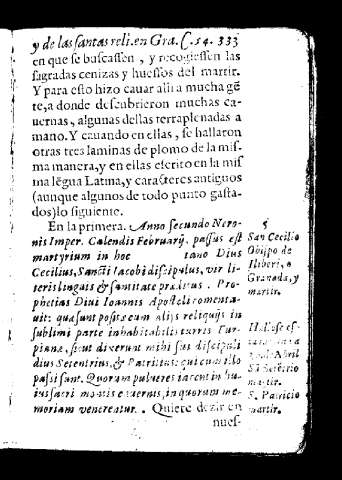 y de las santas reli. en Gra. C. 14. 333
en que se buscassen, y recogiessen las
sagradas cenizas y huessos del martir.
Y para esto hizo cauar alli a mucha gē
te, a donde descubrieron muchas ca-
uernas, algunas dellas terraplenadas a
mano. Y cauando en ellas, se hallaron
otras tres laminas de plomo de la mis-
ma manera, y en ellas escrito en la mis
ma lēgua Latina, y caracteres antiguos
(aunque algunos de todo punto gasta-
dos) lo siguiente.
En la primera. Anno secundo Nero-
nis Imper. Calendis Februarij. passus est
martyrium in hoc tano Diuus
Cecilius, Sancti Iacobi discipulus, vir li-
teris linguis & sanctitate præditus. Pro-
phetias Diui Ioannis Apostoli comenta-
uit: quæ sunt positæ cum alijs reliquijs in
sublimi parte inhabitabilis turris Tur-
pianæ, sicut dixerunt mihi sui discipuli
diuus Setentrius, & Patritius: qui cum illo
passi sunt. Quorum pulueres iacent in hu-
ius sacri montis cauernis, in quorum me-
moriam veneretur. Quiere dezir en
nues-
San Cecilio
Obispo de
Iliberi, o
Granada, y
martir.
Abril
martir.
S. Patricio
martir.